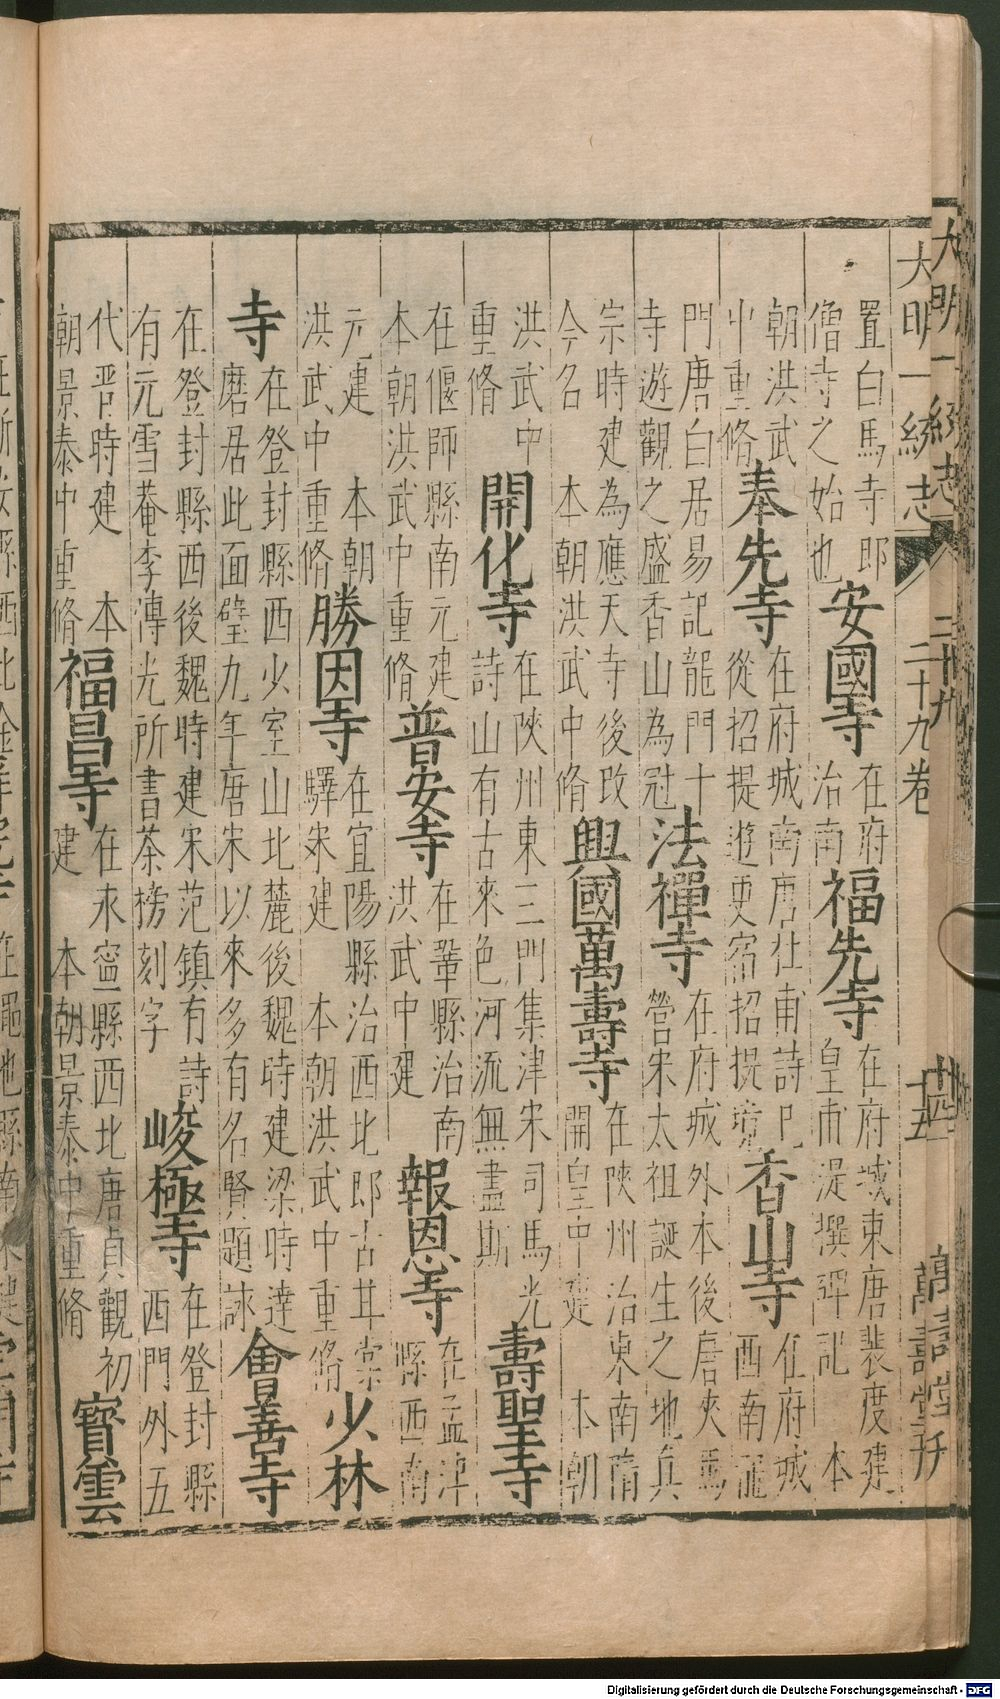 大明一統志 二十九卷 十五 萬壽堂刊
置白馬寺即
僧寺之始也
安國寺
在府
治南
福先寺
在府城東唐裴度建
皇甫湜撰碑記 本
朝洪武
中重脩
奉先寺
在府城南唐杜甫詩已
從招提遊更宿招提境
香山寺
在府城
西南龍
門唐白居易記龍門十
寺遊觀之盛香山為冠
法禪寺
在府城外本後唐夾馬
營宋太祖誕生之地真
宗時建為應天寺後改
今名 本朝洪武中脩
興國萬壽寺
在陝州治東南隋
開皇中建 本朝
洪武中
重脩
開化寺
在陝州東三門集津宋司馬光
詩山有古來色河流無盡斯
壽聖寺
在偃師縣南元建
本朝洪武中重脩
普安寺
在鞏縣治南
洪武中建
報恩寺
在孟津
縣西南
元建 本朝
洪武中重脩
勝因寺
在宜陽縣治西北即古甘棠
驛宋建 本朝洪武中重脩
少林
寺
在登封縣西少室山北麓後魏時建梁時達
磨居此面壁九年唐宋以來多有名賢題詠
會善寺
在登封縣西後魏時建宋范鎮有詩
有元雪菴李溥光所書茶榜刻字
峻極寺
在登封縣
西門外五
代晉時建 本
朝景泰中重脩
福昌寺
在永寧縣西北唐貞觀初
建 本朝景泰中重脩
寶雲
Digitalisierung gefördert durch die Deutsche Forschungsgemeinschaft - DFG